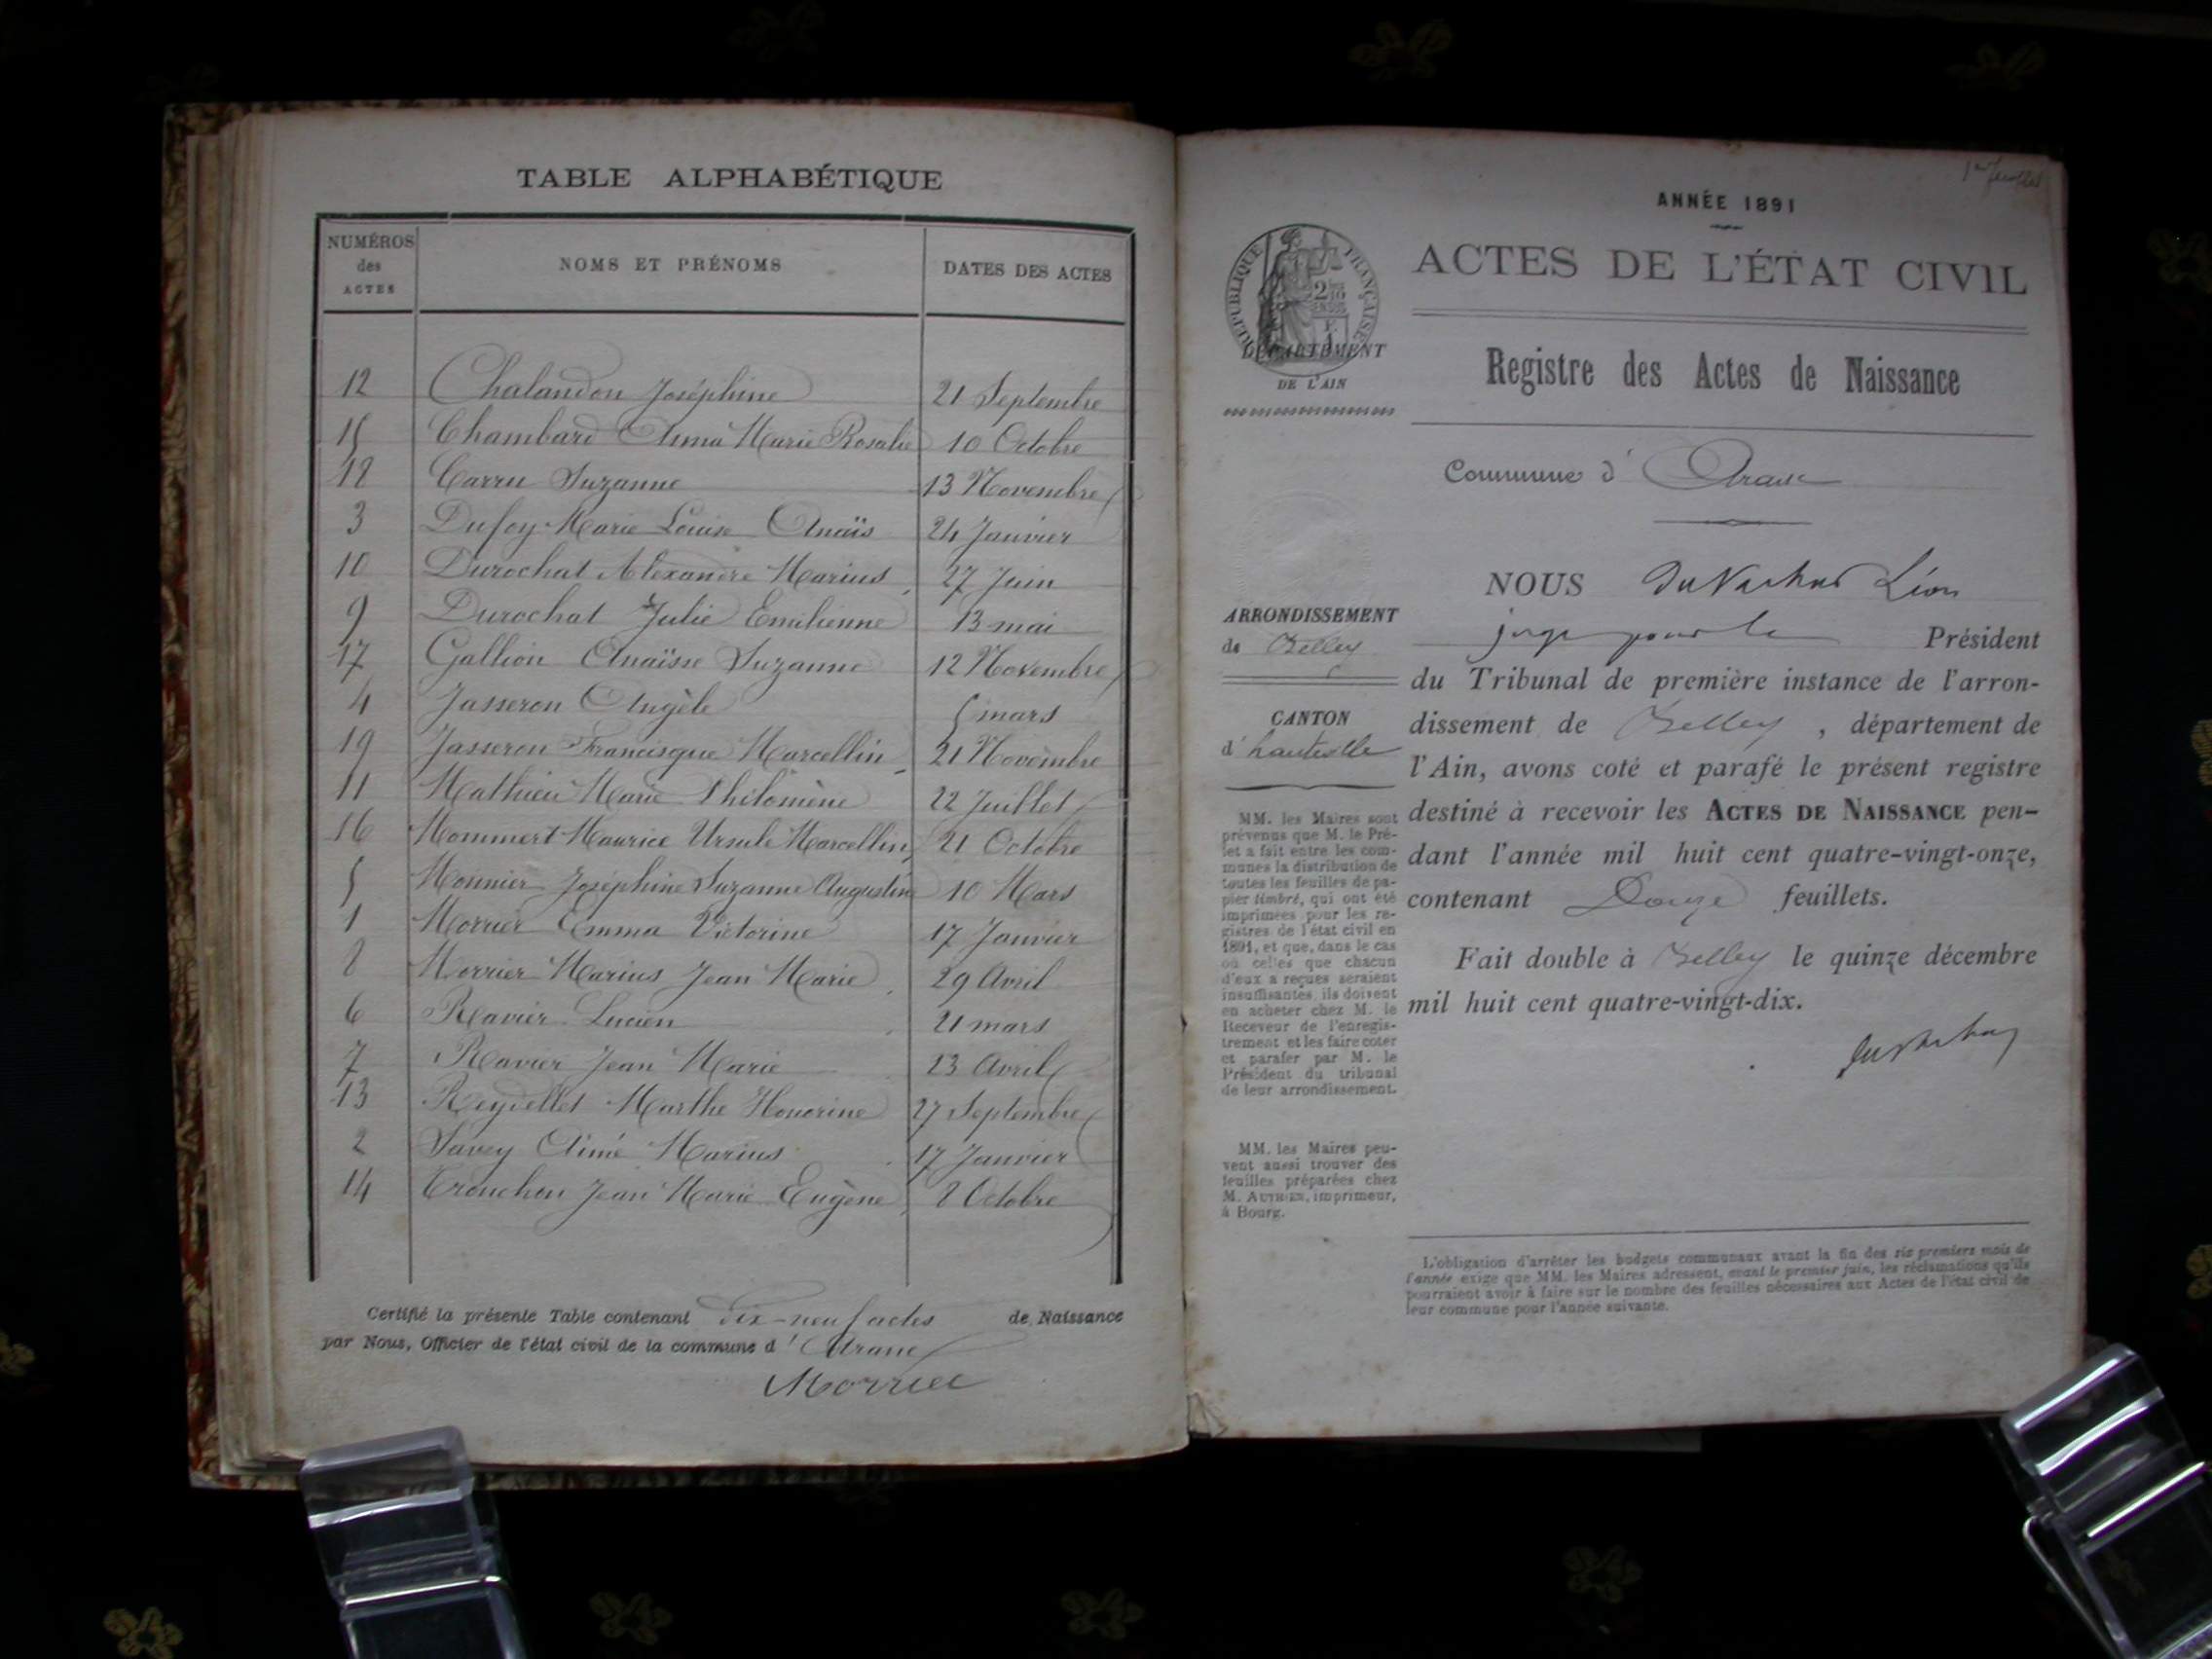 TABLE ALPHABÉTIQUE
NUMÉROS des ACTES NOMS ET PRÉNOMS DATES DES ACTES
12 Chalandon Joséphine 21 Septembre
15 Chambard Anna Marie Rosalie 10 Octobre
18 Carru Suzanne 13 Novembre
3 Dufoy Marie Louise Anaïs 24 Janvier
10 Durochat Alexandre Marius 27 Juin
9 Durochat Julie Emilienne 13 mai
17 Gallion Anaïsse Suzanne 12 Novembre
4 Jasseron Angèle 5 mars
19 Jasseron Francisque Marcellin 21 Novembre
11 Mathieu Marie Philomène 22 Juillet
16 Mommert Maurice Ursule Marcellin 21 Octobre
5 Monnier Joséphine Suzanne Augustine 10 Mars
1 Morrier Emma Victorine 17 Janvier
8 Morrier Marius Jean Marie 29 Avril
6 Ravier Lucien 21 mars
7 Ravier Jean Marie 23 Avril
13 Reydellet Marthe Honorine 27 Septembre
2 Savey Aimé Marius 17 Janvier
14 Tronchon Jean Marie Eugène 8 Octobre
Certifié la présente Table contenant dix-neuf actes de Naissance
par Nous, Officier de l'état civil de la commune d' Aranc
Morrier
1er feuillet
ANNÉE 1891
RÉPUBLIQUE FRANÇAISE
ACTES DE L'ÉTAT CIVIL
DÉPARTEMENT
DE L'AIN
Registre des Actes de Naissance
Commune d' Aranc
ARRONDISSEMENT
de Belley
CANTON
d'hauteville
MM. les Maires sont
prévenus que M. le Pré-
fet a fait entre les com-
munes la distribution de
toutes les feuilles de pa-
pier timbré, qui ont été
imprimées pour les re-
gistres de l'état civil en
1891, et que, dans le cas
où celles que chacun
d'eux a reçues seraient
insuffisantes, ils doivent
en acheter chez M. le
Receveur de l'enregis-
trement et les faire coter
et parafer par M. le
Président du tribunal
de leur arrondissement.
MM. les Maires peu-
vent aussi trouver des
feuilles préparées chez
M. AUTHIER, imprimeur,
à Bourg.
NOUS Léon
juge pour le Président
du Tribunal de première instance de l'arron-
dissement de Belley, département de
l'Ain, avons coté et parafé le présent registre
destiné à recevoir les ACTES DE NAISSANCE pen-
dant l'année mil huit cent quatre-vingt-onze,
contenant Douze feuillets.
Fait double à Belley le quinze décembre
mil huit cent quatre-vingt-dix.
L'obligation d'arrêter les budgets communaux avant la fin des six premiers mois de
l'année exige que MM. les Maires adressent, avant le premier juin, les réclamations qu'ils
pourraient avoir à faire sur le nombre des feuilles nécessaires aux Actes de l'état civil de
leur commune pour l'année suivante.